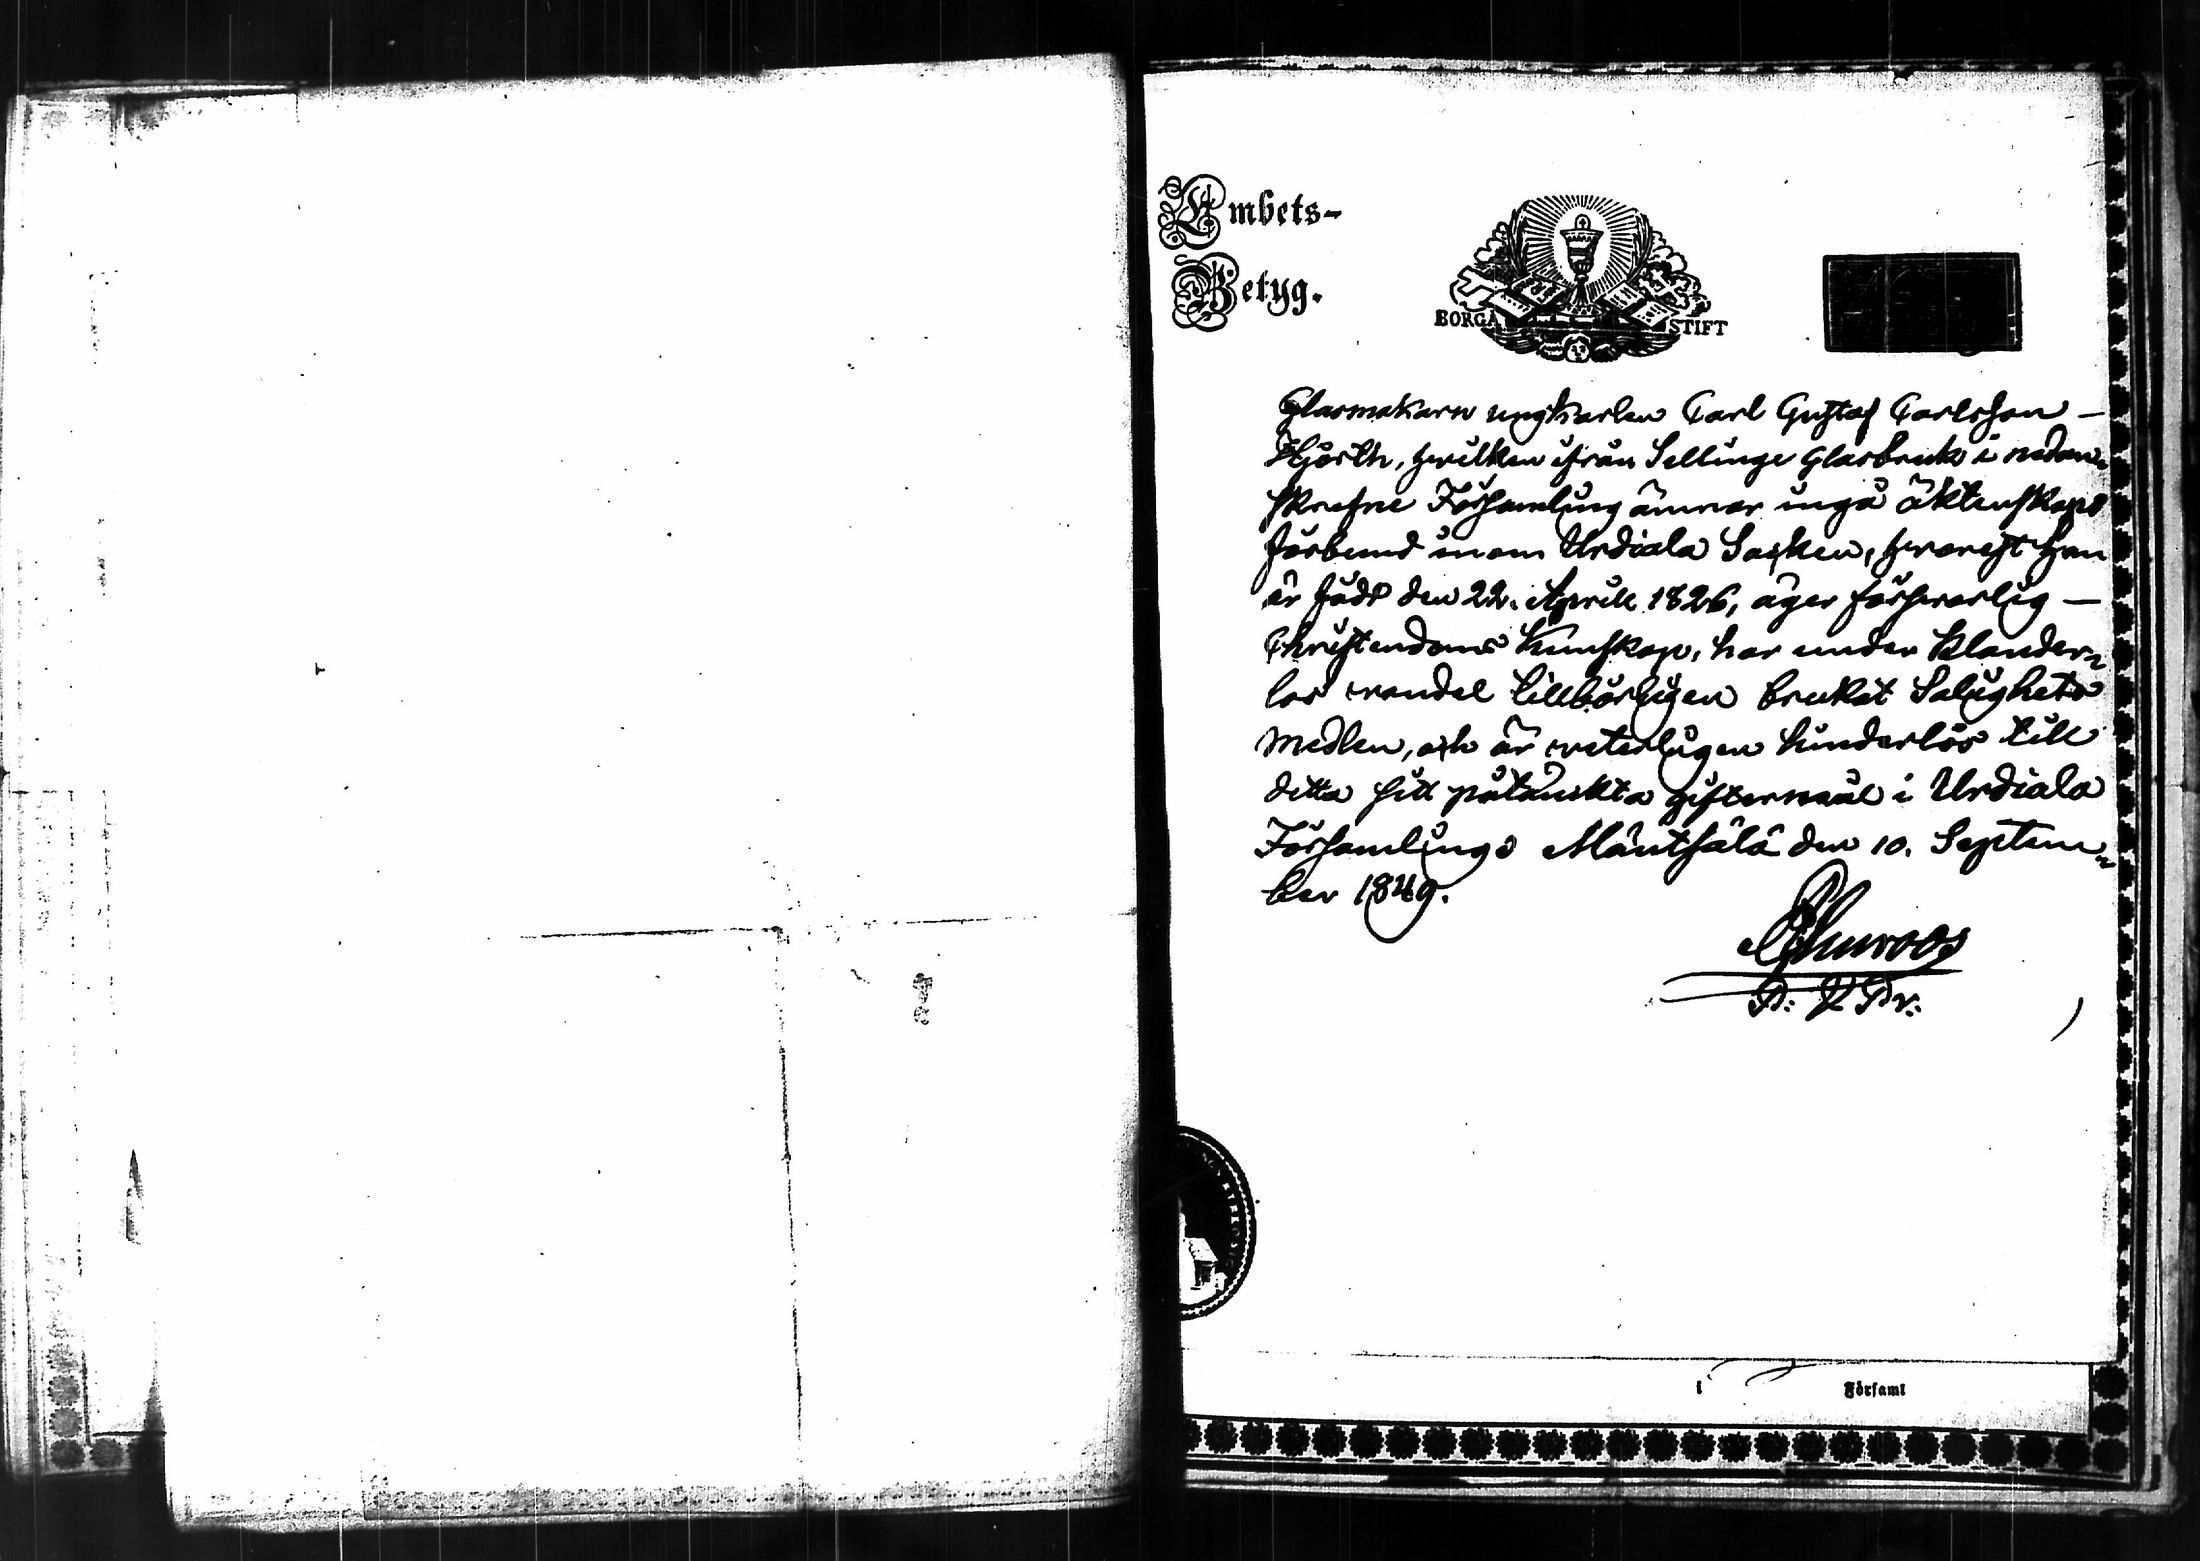 Embets-
Betyg.
BORGÅ STIFT
Glasmakarn ungkarlen Carl Gustaf Carlsson —
Hjorth, hvilken ifrån Sellinge Glasbruk i nedan-
skrefne Församling ämnar ingå äktenskaps
förbund inom Urdiala Socken, hvarest han
är född den 22. Aprill 1826, äger försvarlig —
Christendoms kunskap, har under klander-
lös vandel tillbörligen brukat Salighets
medlen, och är veterligen hinderlös till
detta sitt påtänckta giftermål i Urdiala
Församling; Mäntsälä den 10. Septem-
ber 1849.
P: V Pr:
i Församl